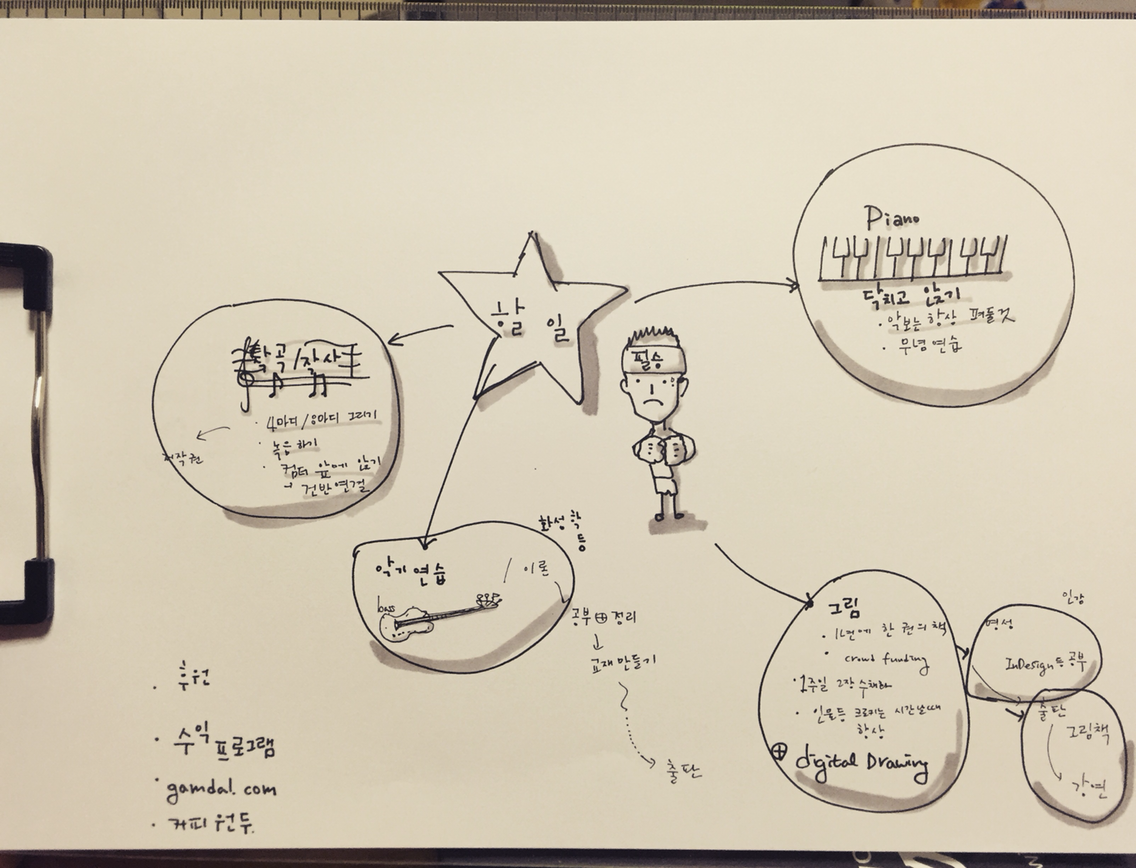 할 일
필승
Piano
닥치고 앉기
· 악보는 항상 펴둘것
· 무념 연습
작곡/작사
· 4마디/8마디 그리기
· 녹음하기
· 컴터 앞에 앉기
→ 건반연결
저작권
악기연습
bass
이론
화성학
등
공부 ⊕ 정리
교재만들기
출판
그림
· 1년에 한 권의 책
· crowd funding
· 1주일 2장 수채화
· 인물등 크로키는 시간날때
항상
⊕ digital Drawing
인강
InDesign등 공부
출판
그림책
강연
· 후원
· 수익 프로그램
· gamdal.com
· 커피 원두.